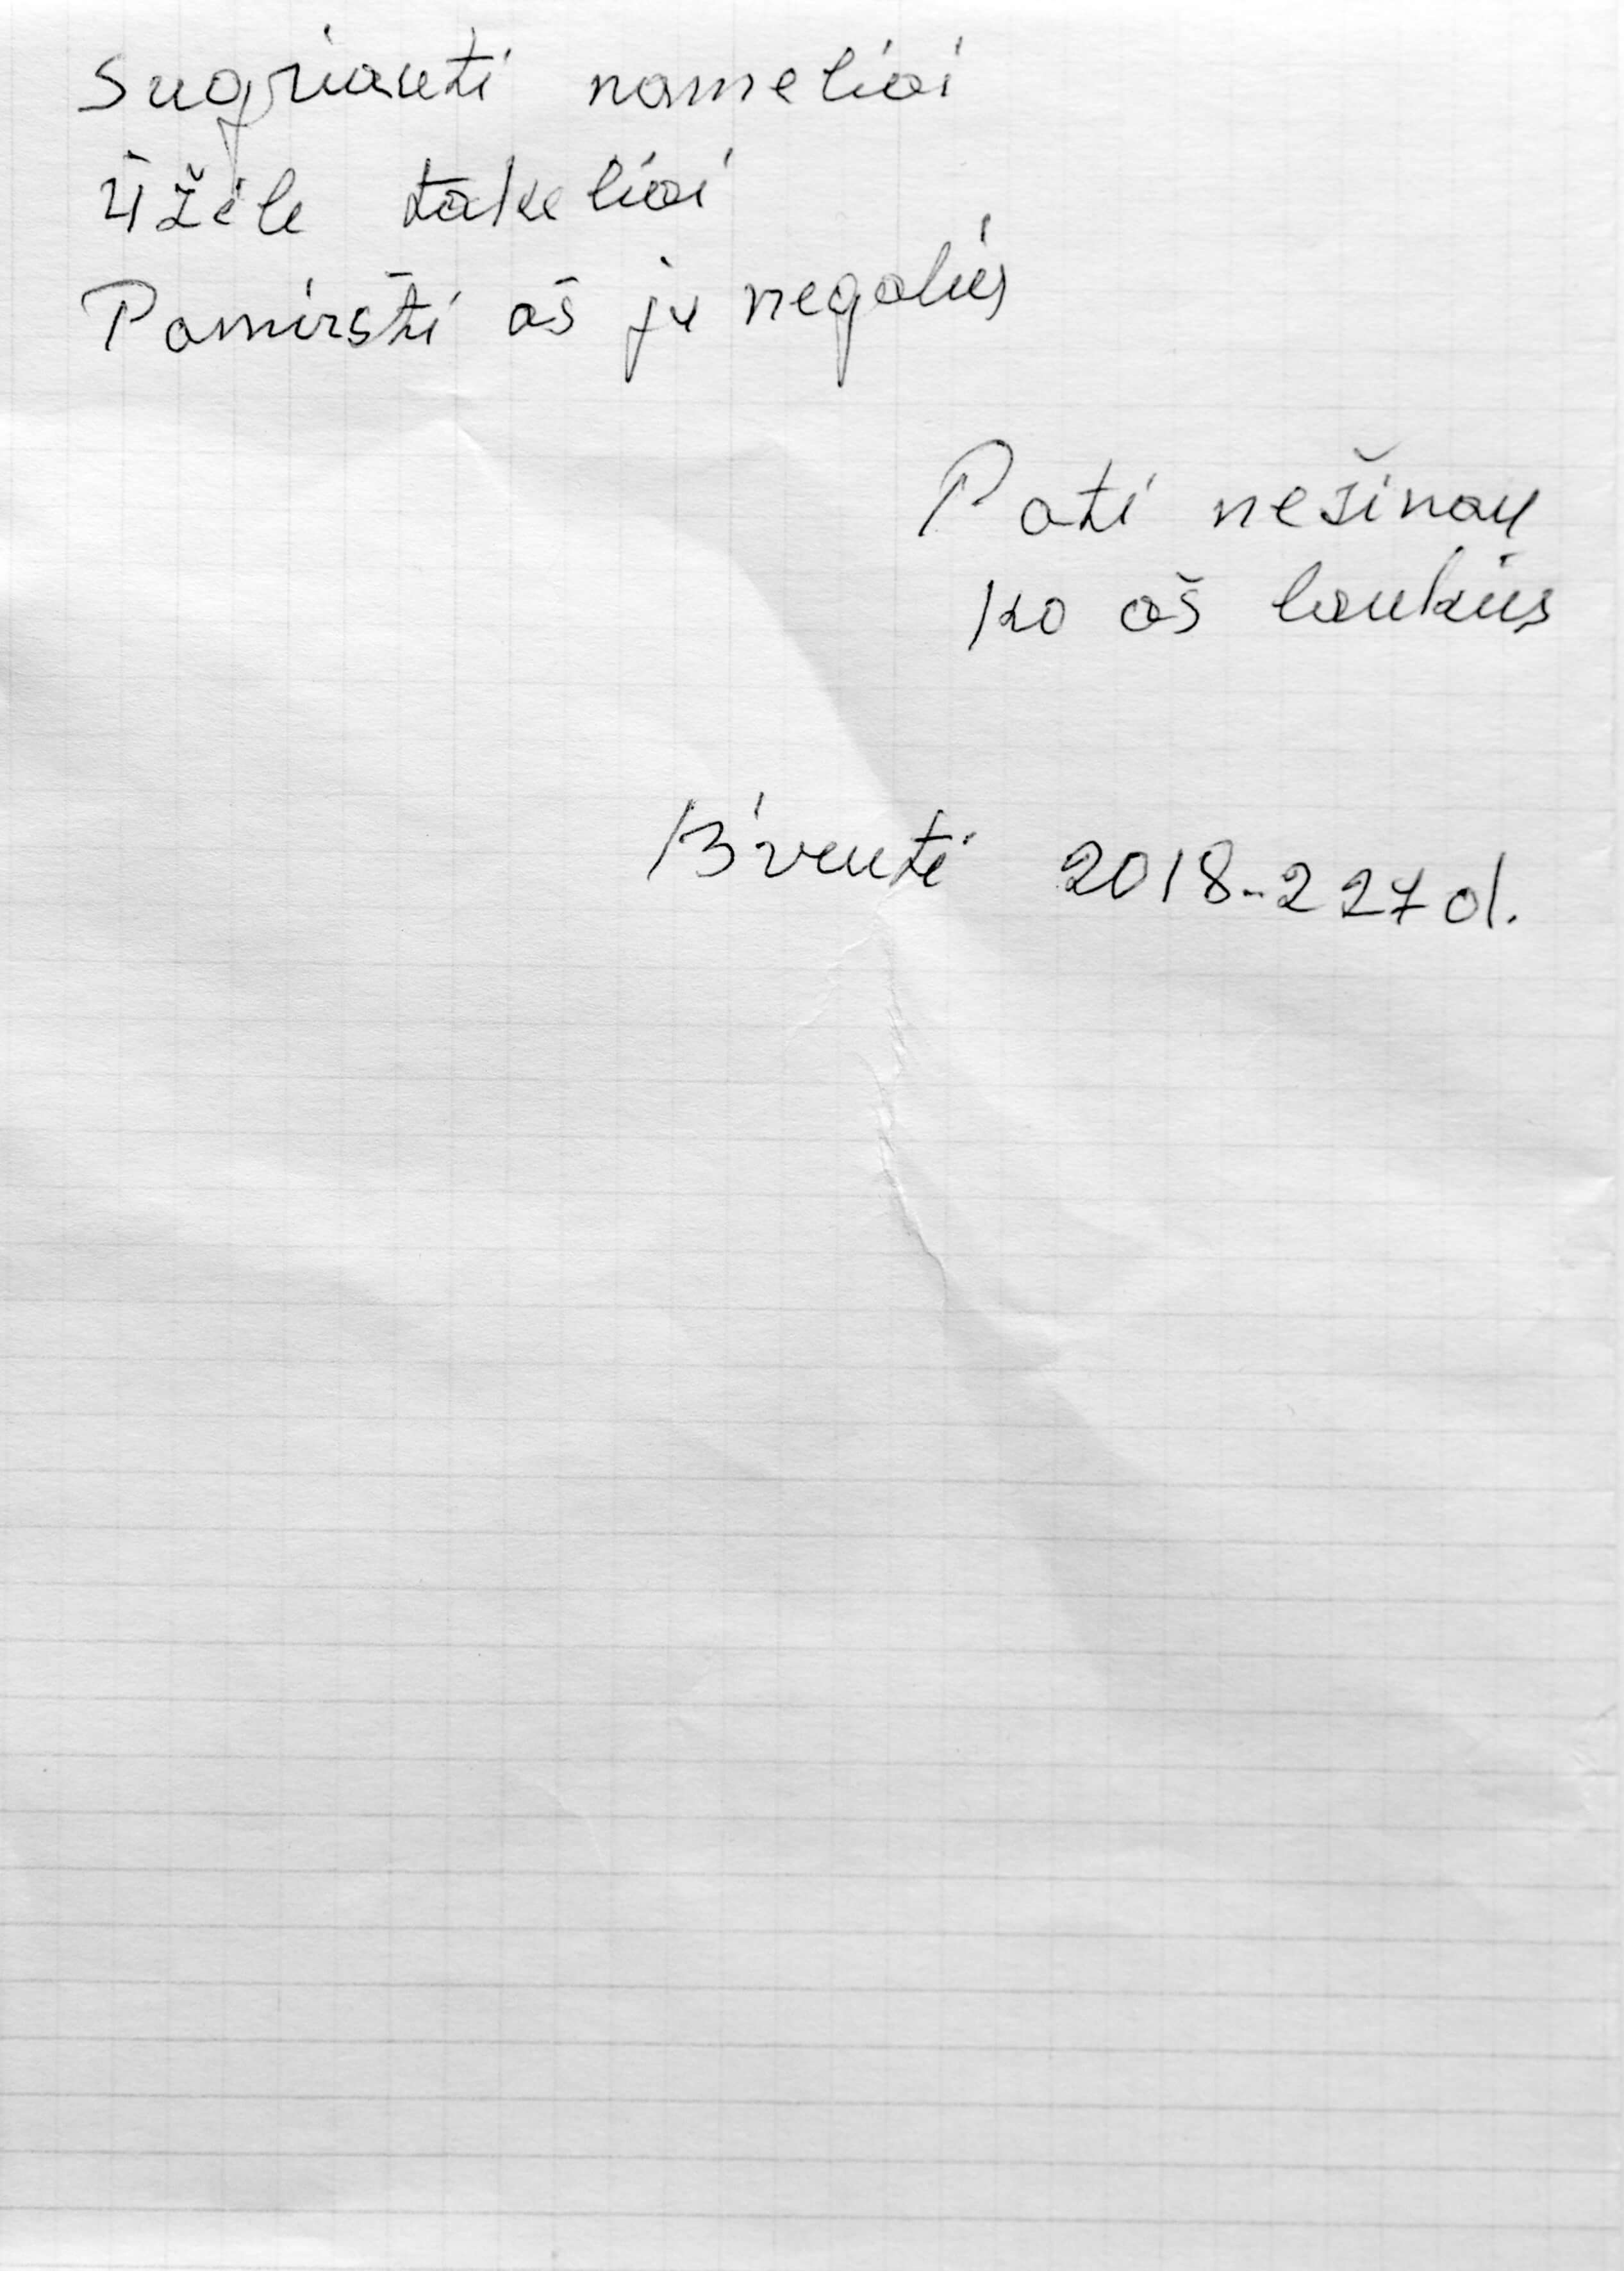 Sugriauti nameliai
Užėlė takeliai
Pamiršti aš jų negaliu
Pati nežinau
ko aš laukiu
2018-2 27 d.